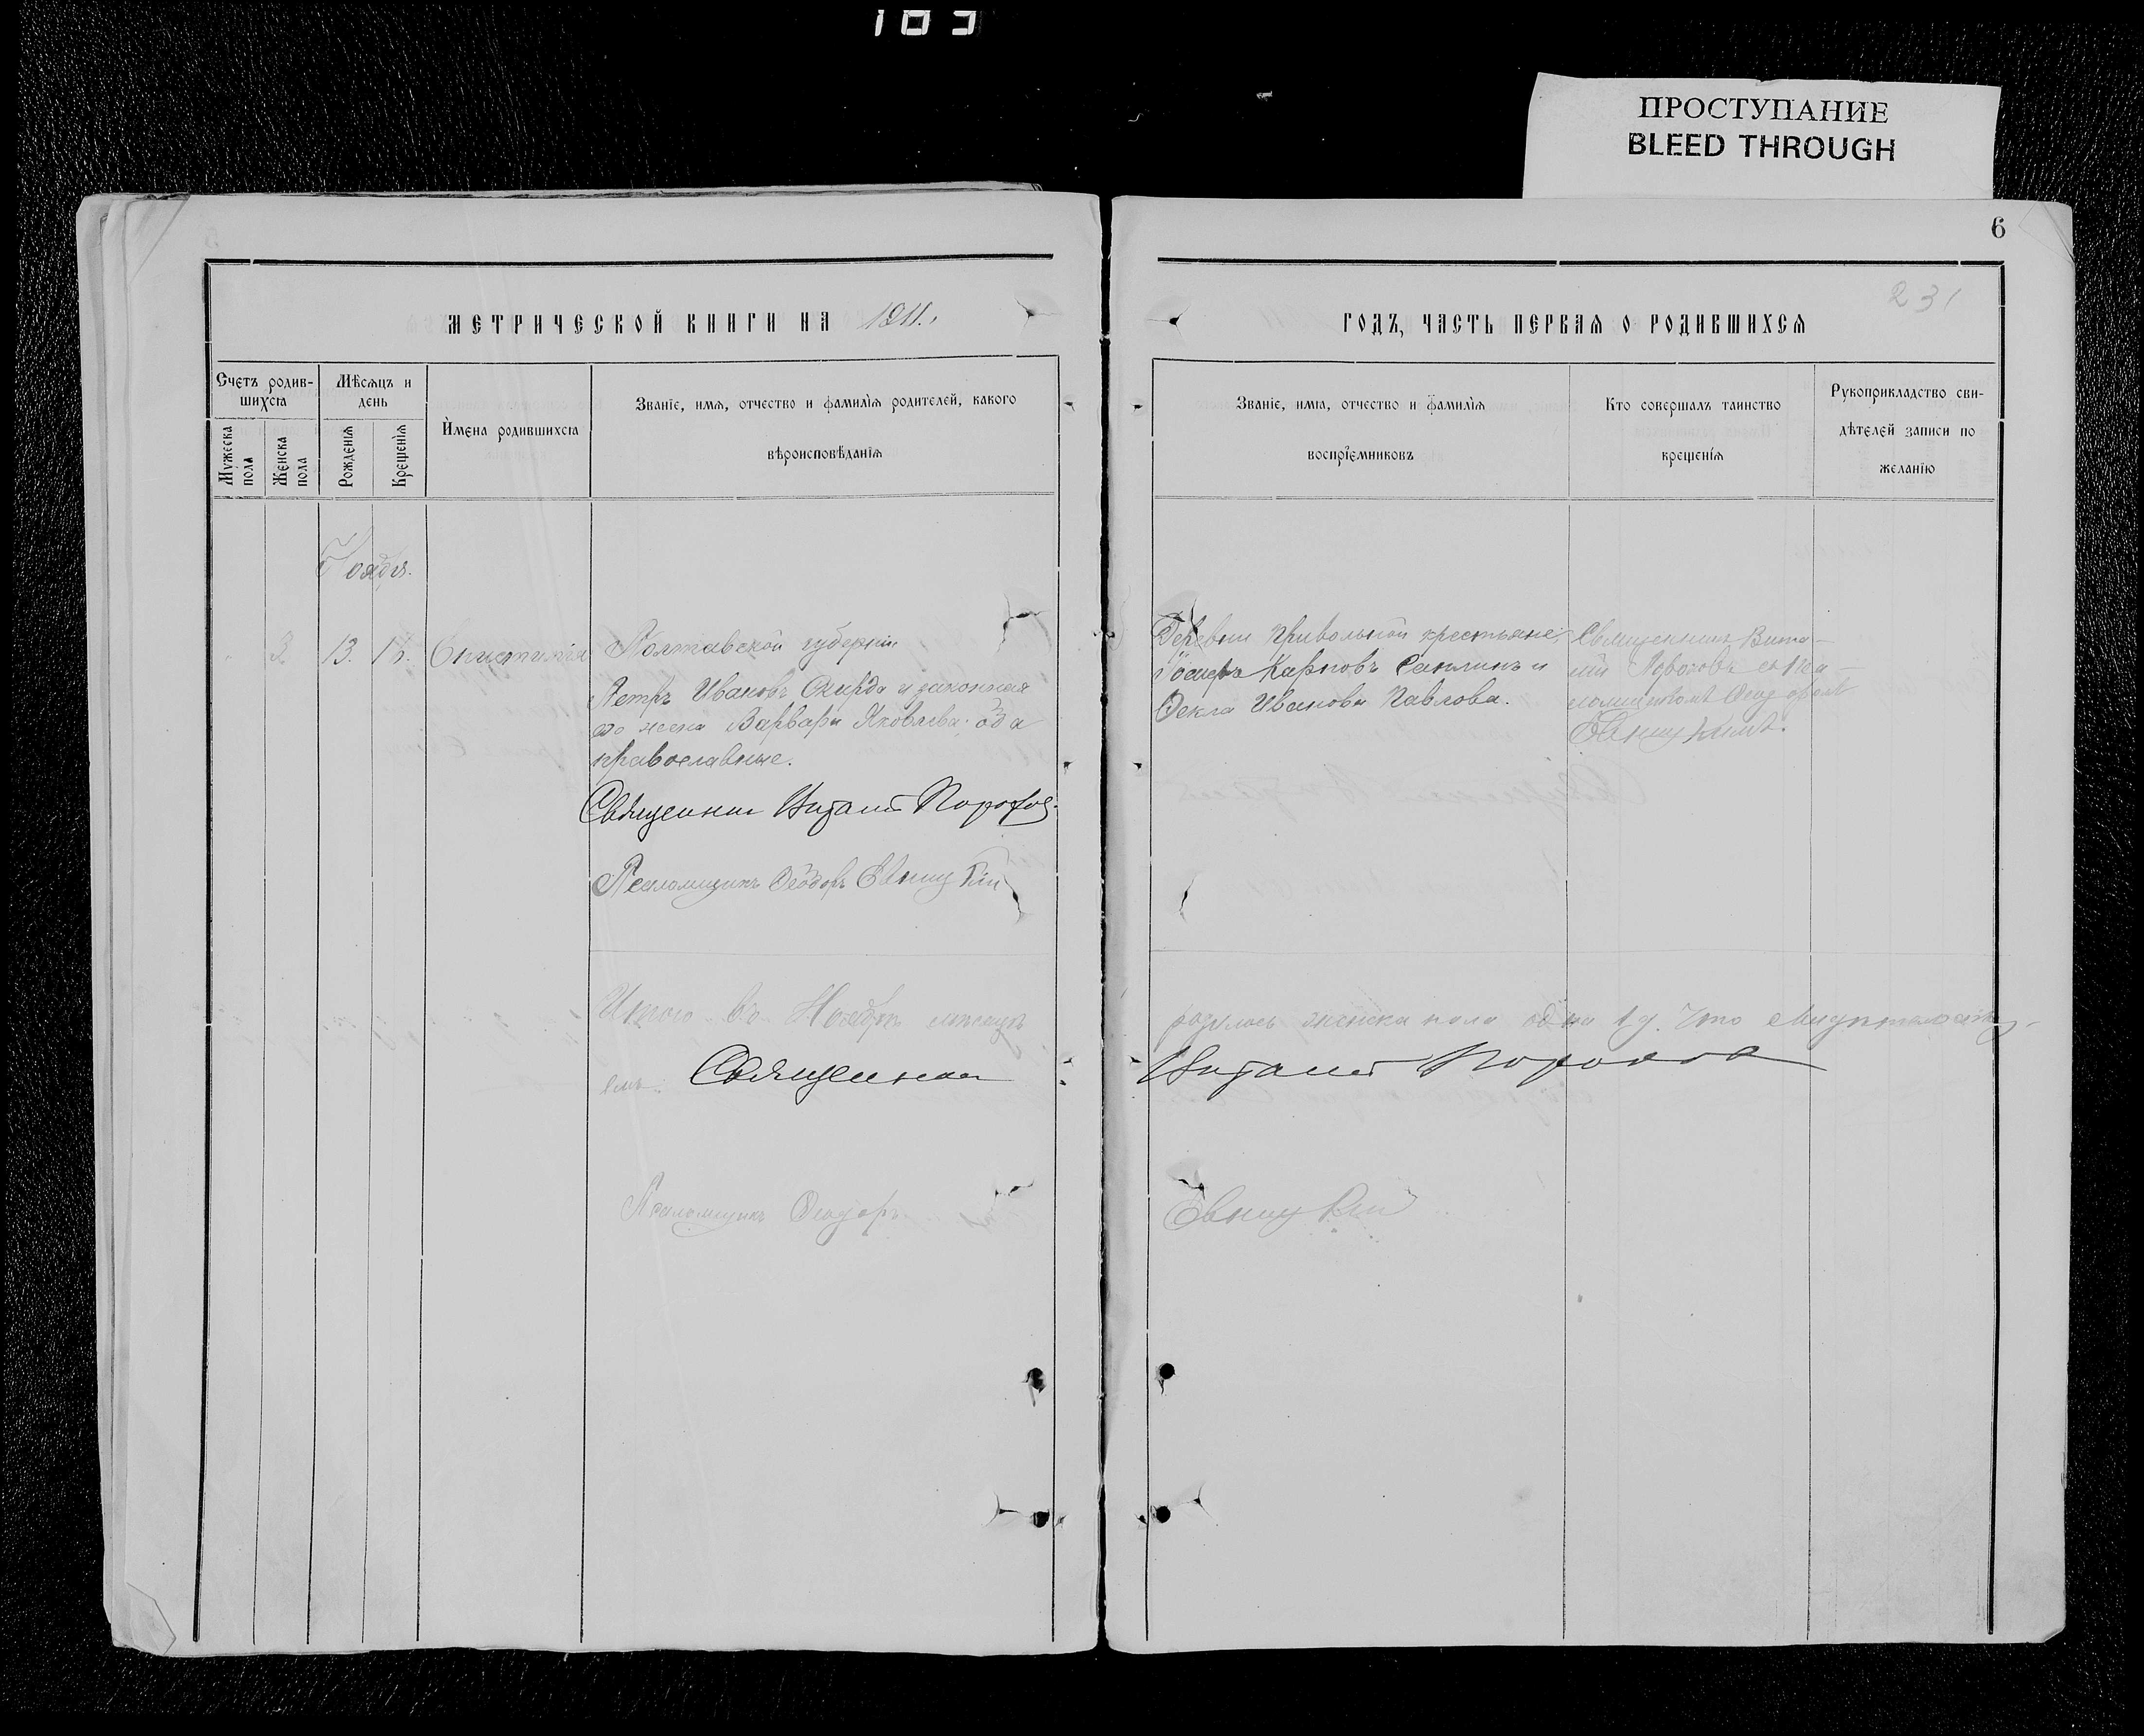 103
ПРОСТУПАНИЕ
BLEED THROUGH
6
231
МЕТРИЧЕСКОЙ КНИГИ НА 1911.
ГОДЪ, ЧАСТЬ ПЕРВАЯ О РОДИВШИХСЯ
Счетъ родив-
шихся
Мужеска
пола
Женска
пола
Мѣсяцъ и
день
Рожденія
Крещенія
Имена родившихся
Званіе, имя, отчество и фамилія родителей, какого
вѣроисповѣданія
Званіе, имя, отчество и фамилія
воспріемниковъ
Кто совершалъ таинство
крещенія
Рукоприкладство сви-
дѣтелей записи по
желанію
Ноября.
13.
Полтавской губерніи
Петръ Ивановъ и законная
его жена Варвара Яковлева оба
православные.
Священник Виталий Порохов
Псаломщикъ Ѳеодоръ
Деревни Привольной крестьяне
Карповъ и
Ѳекла Иванова Павлова.
Священникъ Вита-
лій Пороховъ съ пса-
ломщикомъ Ѳеодоромъ
Итого въ Ноябрѣ мѣсяцѣ
родилось женска пола одна 1 д. Что свидѣтельству-
емъ. Священник
Виталий Порохов
Псаломщикъ Ѳеодоръ